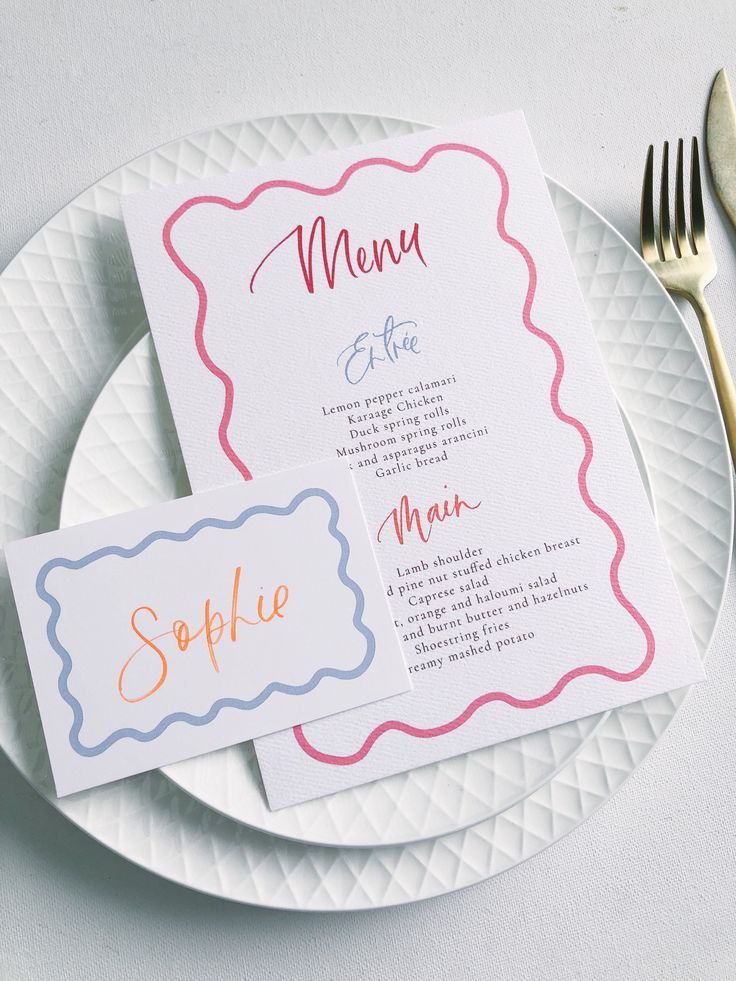 Menu
Entrée
Lemon pepper calamari
Karaage Chicken
Duck spring rolls
Mushroom spring rolls
and asparagus arancini
Garlic bread
Main
Lamb shoulder
pine nut stuffed chicken breast
Caprese salad
orange and haloumi salad
and burnt butter and hazelnuts
Shoestring fries
mashed potato
Sophie